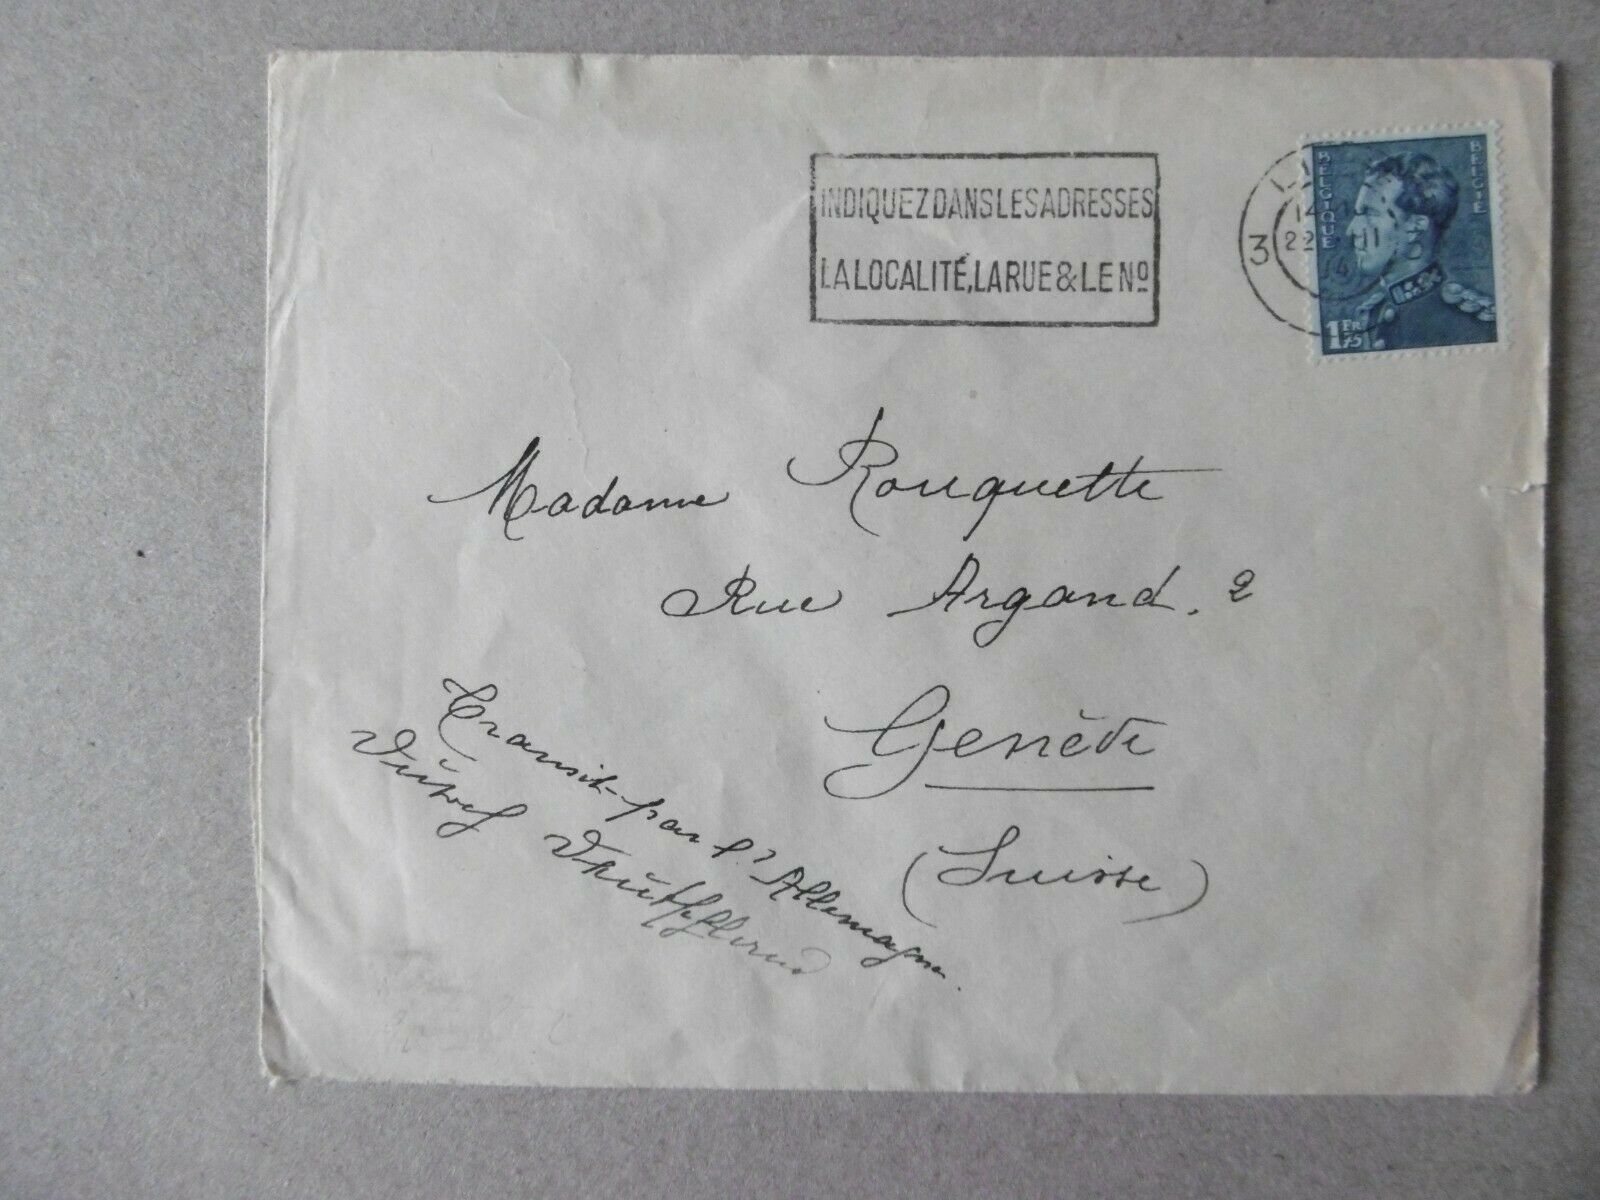 INDIQUEZ DANS LES ADRESSES
LA LOCALITÉ, LA RUE & LE Nº
3
22
BELGIQUE
BELGIË
1 FR 75
Madame Rouquette
Rue Argand. 2
Genève
(Suisse)
Transit-par l'Allemagne.